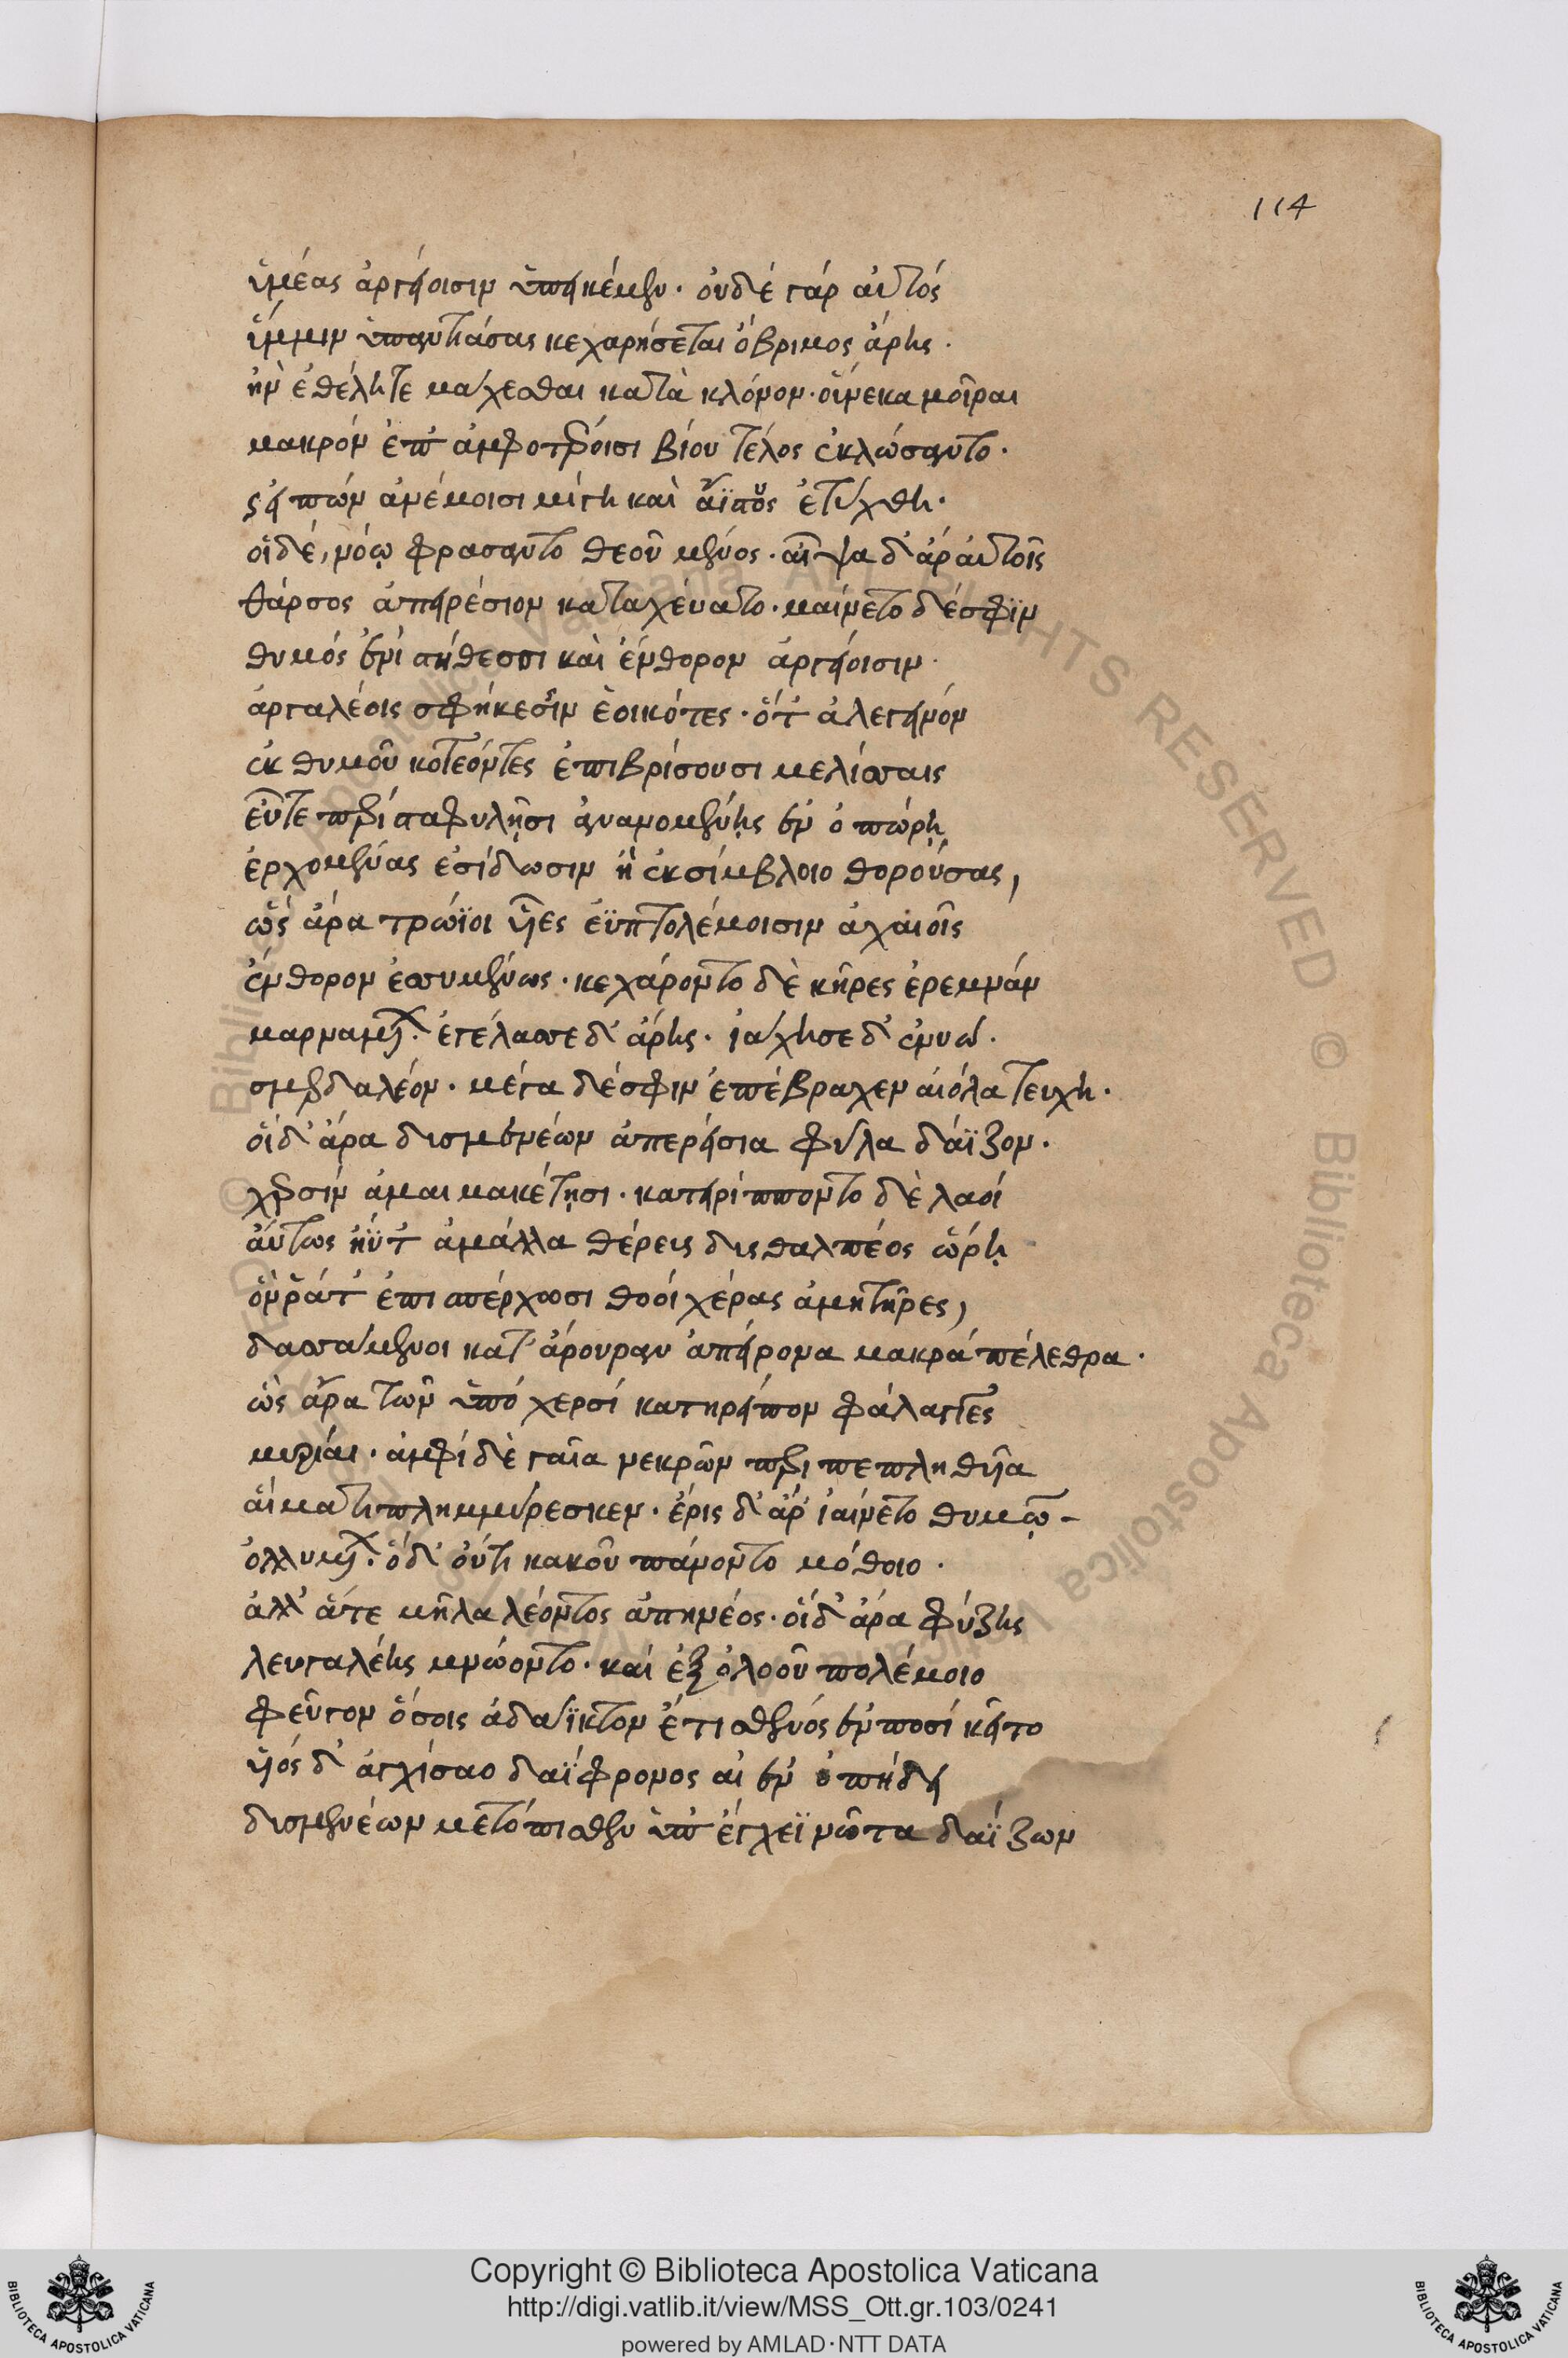 114
ὑμέας ἀργείοισιν ὑπεικέμεν· οὐδὲ γάρ αὐτός
ὕμμιν ὑπαντιάσας κεχαρήσεται ὄβριμος ἄρης·
ἢν ἐθέλητε μάχεσθαι κατὰ κλόνον· οὕνεκα μοῖραι
μακρόν ἐπ' ἀμφοτέροισι βίου τέλος ἐκλώσαντο·
οἱ δέ, νόῳ φρασαντο θεοῦ μένος· αἶψα δ' ἄρ αὐτοῖς
θάρσος ἀπειρέσιον καταχεύατο· μαίνετο δέ σφϊν
θυμός ἐνί στήθεσσι καὶ ἔνθορον ἀργείοισιν·
ἀργαλέοις σφήκεσσιν ἐοικότες· ὅτ' ἀλεγεινόν
ἐκ θυμοῦ κοτέοντες ἐπιβρίσουσι μελίσσαις
εὖτε περί σταφυλῇσι αναινομένης ἐν ὀπώρῃ
ἐρχομένας ἐσίδωσιν ἢ ἐκ σίμβλοιο θορούσας,
ὥς ἄρα τρώϊοι υἷες ἐϋπτολέμοισιν ἀχαιοῖς
ἔνθορον ἐσσυμένως· κεχάροντο δὲ κῆρες ἐρεμνάν
μαρναμένων· ἐγέλασσε δ' ἄρης· ἰάχησε δ' ἐνυώ·
σμερδαλέον· μέγα δέ σφιν ἐπέβραχεν αἰόλα τευχη·
οἵ δ' ἄρα δυσμενέων ἀπερείσια φύλα δάϊζον·
χερσίν ἀμαιμακέτῃσι· κατηρίπποντο δὲ λαοί
αὔτως ἠΰτ' ἀμάλλα θέρεις δυς θαλπέος ὥρῃ
ὅν ῥάτ' ἐπισπέρχωσι θοοί χέρας ἀμητῆρες,
δασσάμενοι κατ' ἄρουραν ἀπείρονα μακρά πέλεθρα·
ὡς ἄρα τῶν ὑπό χερσί κατηρειπον φάλαγγες
μυρίαι· ἀμφί δὲ γαῖα νεκρῶν περι πεπληθυῖα
αἵματι πλημμύρεσκεν· ἔρις δ' ἄρ' ἰαίνετο θυμῷ-
ὀλλυμένων· ὁδ' οὔτι κακοῦ παύοντο μόθοιο·
ἀλλ' ἅτε μῆλα λέοντος ἀπηνέος· οἵ δ' ἄρα φύζης
λευγαλέης μνώοντο· καί ἐξ ὀλοοῦ πολέμοιο
φεῦγον ὅσοις ἀδάϊκτον ἔτι σθένός ἐν ποσί κεῖτο
υἱός δ' ἀγχίσαο δαΐφρονος αἰὲν ὀπήδει
δυσμενέων μετόπισθεν ὑπ' ἔγχεϊ νῶτα δαΐζων
Copyright © Biblioteca Apostolica Vaticana
http://digi.vatlib.it/view/MSS_Ott.gr.103/0241
powered by AMLAD·NTT DATA